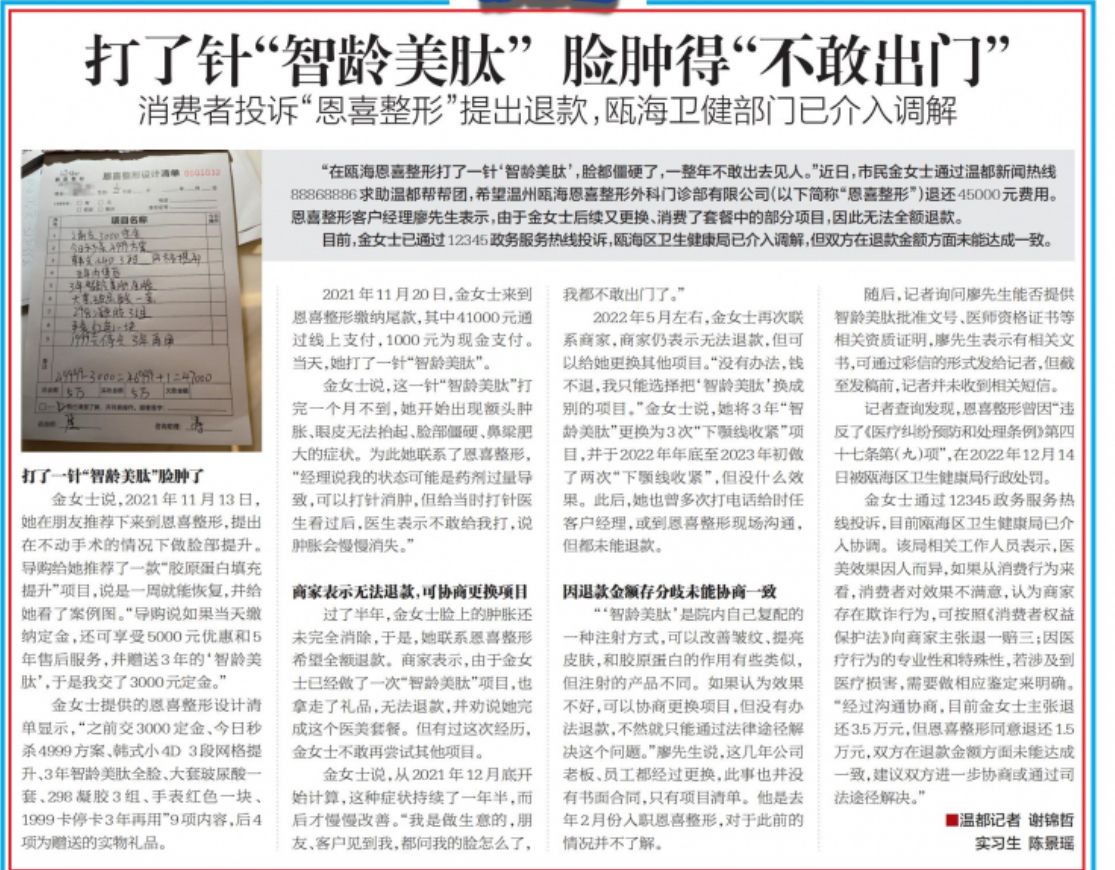 打了针“智龄美肽” 脸肿得“不敢出门”
消费者投诉“恩喜整形”提出退款，瓯海卫健部门已介入调解
恩喜整形设计清单 0001032
项目名称
“在瓯海恩喜整形打了一针‘智龄美肽’，脸都僵硬了，一整年不敢出去见人。”近日，市民金女士通过温都新闻热线
88868886求助温都帮帮团，希望温州瓯海恩喜整形外科门诊部有限公司（以下简称“恩喜整形”）退还45000元费用。
恩喜整形客户经理廖先生表示，由于金女士后续又更换、消费了套餐中的部分项目，因此无法全额退款。
目前，金女士已通过12345政务服务热线投诉，瓯海区卫生健康局已介入调解，但双方在退款金额方面未能达成一致。
打了一针“智龄美肽”脸肿了
金女士说，2021年11月13日，
她在朋友推荐下来到恩喜整形，提出
在不动手术的情况下做脸部提升。
导购给她推荐了一款“胶原蛋白填充
提升”项目，说是一周就能恢复，并给
她看了案例图。“导购说如果当天缴
纳定金，还可享受5000元优惠和5
年售后服务，并赠送3年的‘智龄美
肽’，于是我交了3000元定金。”
金女士提供的恩喜整形设计清
单显示，“之前交3000定金、今日秒
杀4999方案、韩式小4D 3段网格提
升、3年智龄美肽全脸、大套玻尿酸一
套、298凝胶3组、手表红色一块、
1999卡停卡3年再用”9项内容，后4
项为赠送的实物礼品。
2021年11月20日，金女士来到
恩喜整形缴纳尾款，其中41000元通
过线上支付，1000元为现金支付。
当天，她打了一针“智龄美肽”。
金女士说，这一针“智龄美肽”打
完一个月不到，她开始出现额头肿
胀、眼皮无法抬起、脸部僵硬、鼻梁肥
大的症状。为此她联系了恩喜整形，
“经理说我的状态可能是药剂过量导
致，可以打针消肿，但给当时打针医
生看过后，医生表示不敢给我打，说
肿胀会慢慢消失。”
商家表示无法退款，可协商更换项目
过了半年，金女士脸上的肿胀还
未完全消除，于是，她联系恩喜整形
希望全额退款。商家表示，由于金女
士已经做了一次“智龄美肽”项目，也
拿走了礼品，无法退款，并劝说她完
成这个医美套餐。但有过这次经历，
金女士不敢再尝试其他项目。
金女士说，从2021年12月底开
始计算，这种症状持续了一年半，而
后才慢慢改善。“我是做生意的，朋
友、客户见到我，都问我的脸怎么了，
我都不敢出门了。”
2022年5月左右，金女士再次联
系商家，商家仍表示无法退款，但可
以给她更换其他项目。“没有办法，钱
不退，我只能选择把‘智龄美肽’换成
别的项目。”金女士说，她将3年“智
龄美肽”更换为3次“下颚线收紧”项
目，并于2022年年底至2023年初做
了两次“下颚线收紧”，但没什么效
果。此后，她也曾多次打电话给时任
客户经理，或到恩喜整形现场沟通，
但都未能退款。
因退款金额存分歧未能协商一致
“‘智龄美肽’是院内自己复配的
一种注射方式，可以改善皱纹、提亮
皮肤，和胶原蛋白的作用有些类似，
但注射的产品不同。如果认为效果
不好，可以协商更换项目，但没有办
法退款，不然就只能通过法律途径解
决这个问题。”廖先生说，这几年公司
老板、员工都经过更换，此事也并没
有书面合同，只有项目清单。他是去
年2月份入职恩喜整形，对于此前的
情况并不了解。
随后，记者询问廖先生能否提供
智龄美肽批准文号、医师资格证书等
相关资质证明，廖先生表示有相关文
书，可通过彩信的形式发给记者，但截
至发稿前，记者并未收到相关短信。
记者查询发现，恩喜整形曾因“违
反了《医疗纠纷预防和处理条例》第四
十七条第（九）项”，在2022年12月14
日被瓯海区卫生健康局行政处罚。
金女士通过12345政务服务热
线投诉，目前瓯海区卫生健康局已介
入协调。该局相关工作人员表示，医
美效果因人而异，如果从消费行为来
看，消费者对效果不满意，认为商家
存在欺诈行为，可按照《消费者权益
保护法》向商家主张退一赔三；因医
疗行为的专业性和特殊性，若涉及到
医疗损害，需要做相应鉴定来明确。
“经过沟通协商，目前金女士主张退
还3.5万元，但恩喜整形同意退还1.5
万元，双方在退款金额方面未能达成
一致，建议双方进一步协商或通过司
法途径解决。”
■温都记者 谢锦哲
实习生 陈景瑶